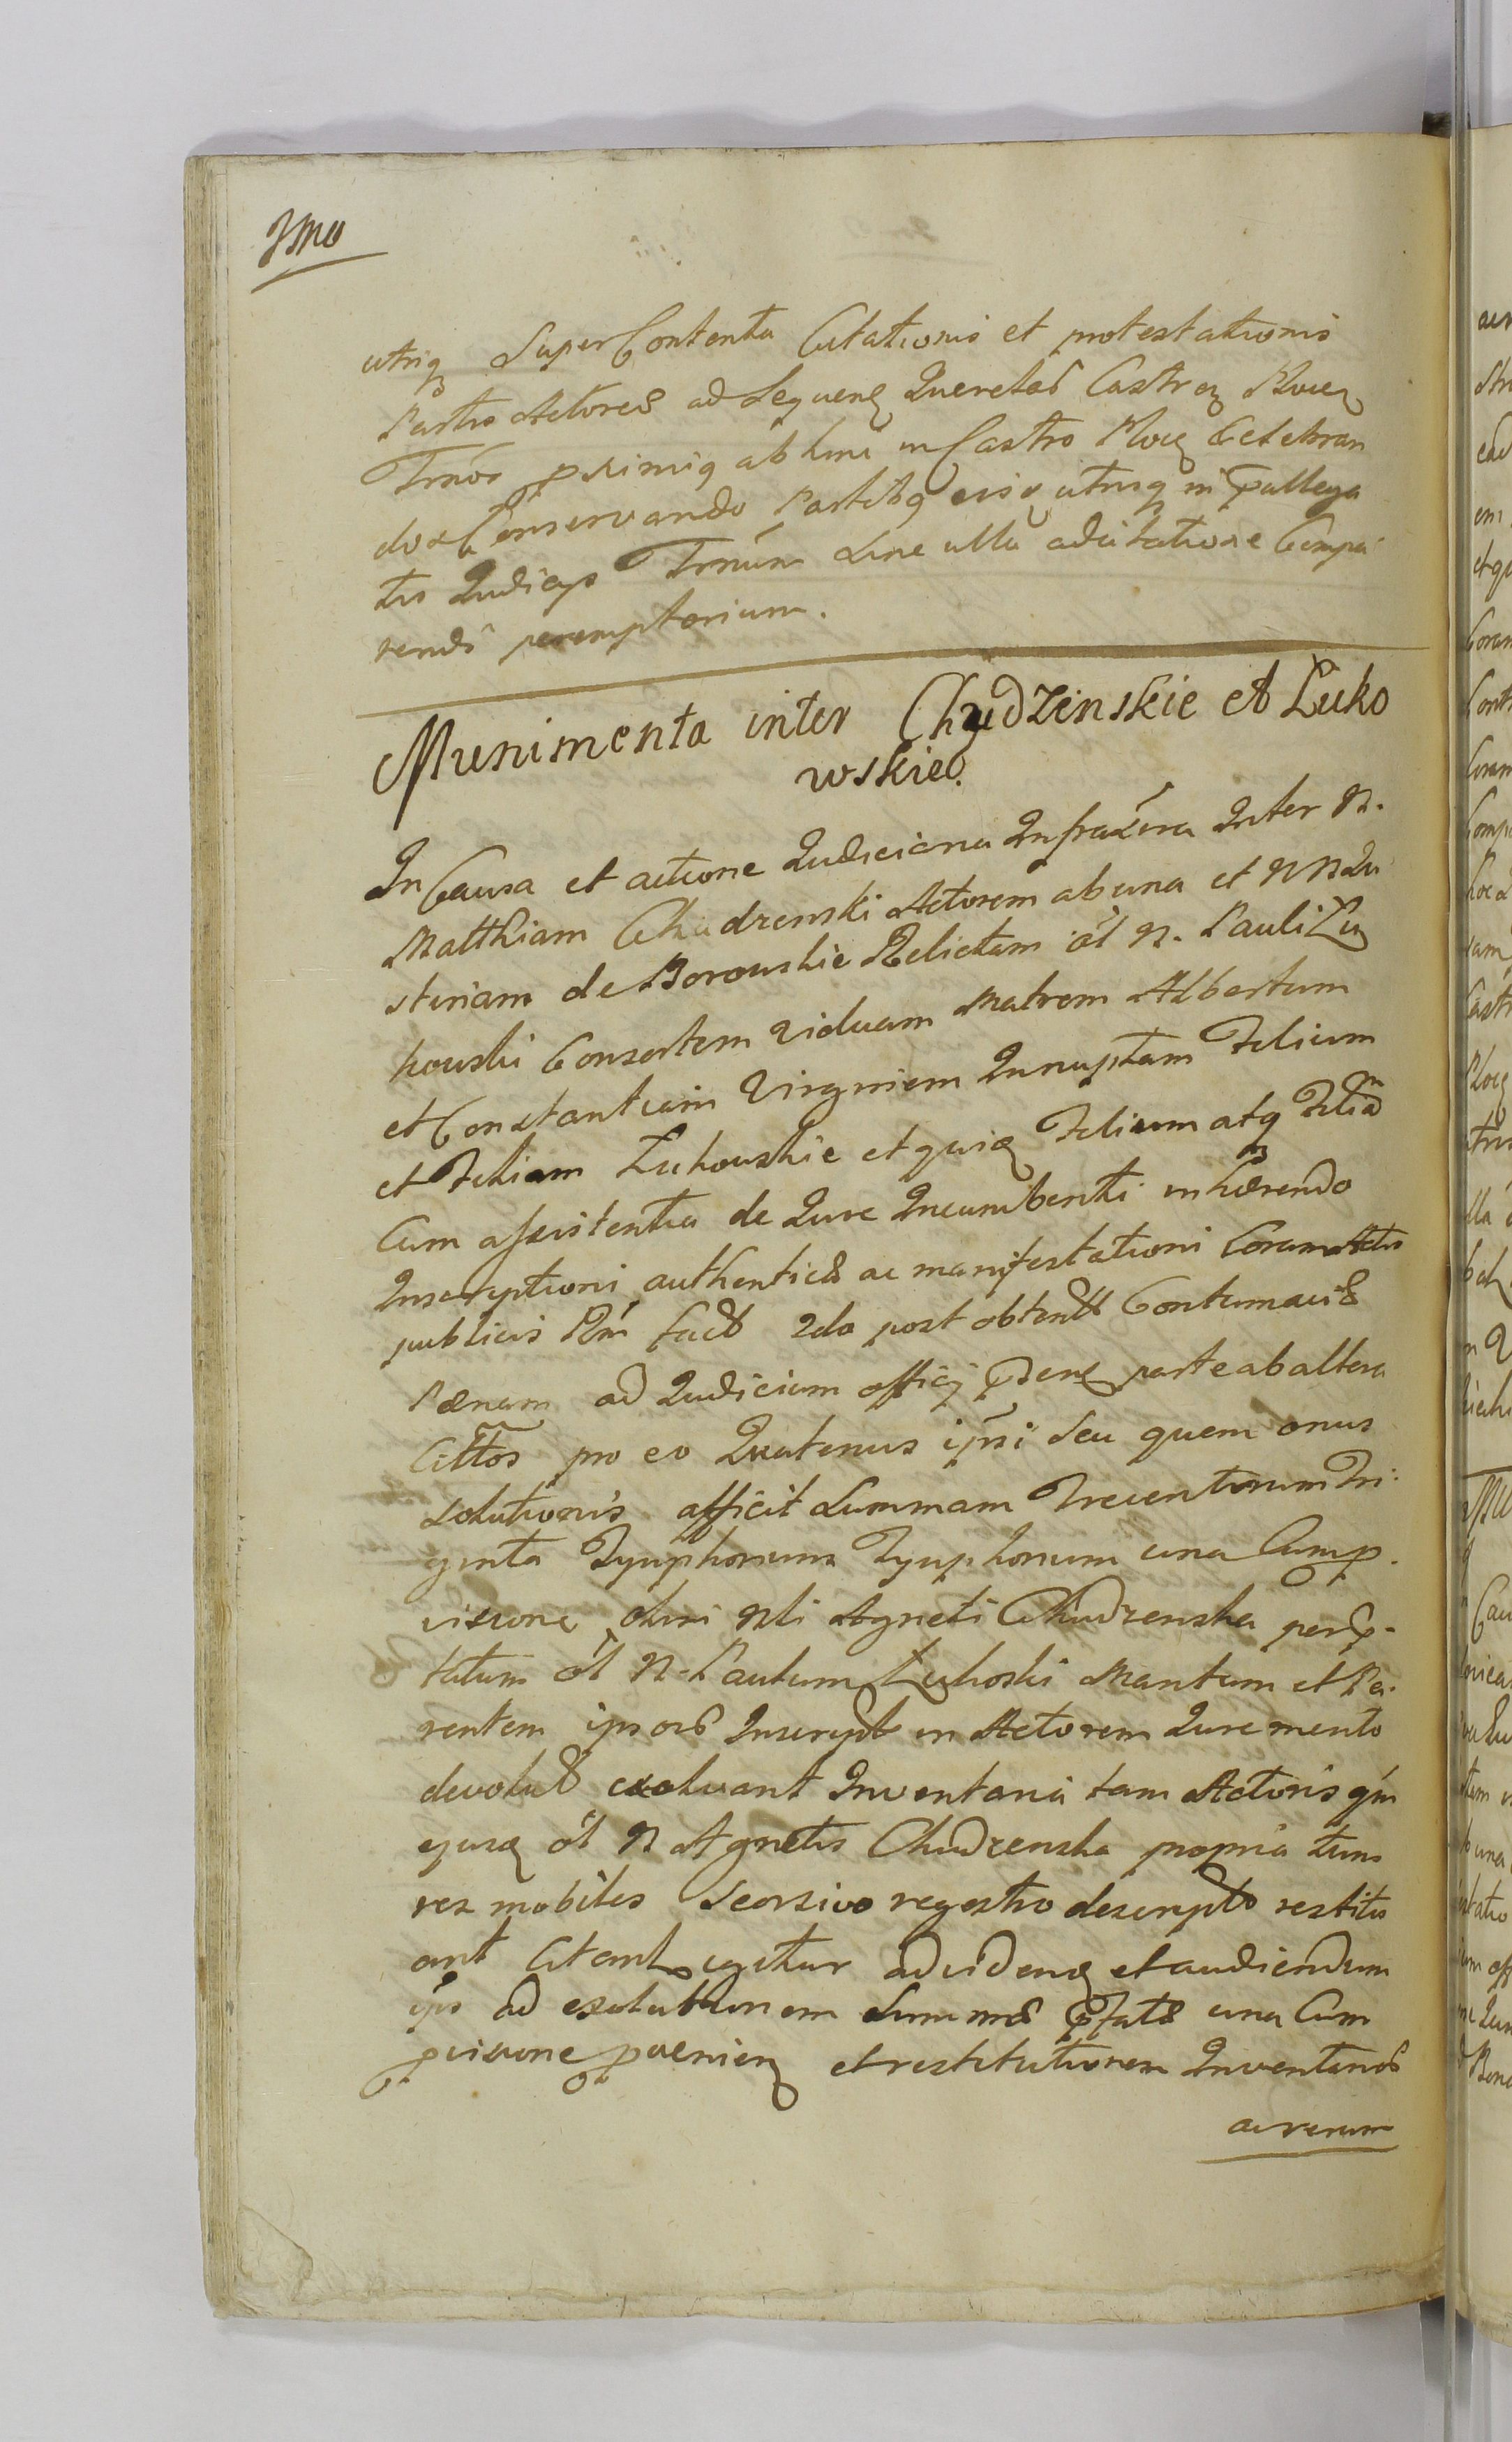 Imo
utrisq Super Contenta Citationis et protestationis
Partis Actoreæ ad Sequenq Querelas Castren Plocen
Trnos proximiq abhinc in Castro Ploc Celebran
dos Conservando Partibq eisq utrisq in præallega
tis Judicys Trnum Sine ulla adcitatione Compa
rendi peremptorium.
Munimenta inter Chudzinskie et Łuko
wskie.
In Causa et actione Judiciaria Infrascra Inter N.
Matthiam Chudzenski Actorem ab una et NN Ju
stinam de Borowskie Relictam ol N. Pauli Łu
kowski Consortem Viduam Matrem Albertum
et Constantiam Virginem Innuptam Filium
et Filiam Łukowskie et quiq Filium atq Filiam
Cum assistentia de Jure Incumbenti inhærendo
Inscriptioni authenticæ ac manifestationi Coram Actis
publicis Rm factæ 2do post obtentæ Contumaciæ
Pænam ad Judicium officy præsens parte ab altera
Cittos pro eo Quatenus ipsi seu quem onus
Solutionis afficit Summam Trecentorum Tri
ginta Tynphonum Tynphonum una Cum p
visione olim Nli Agneti Chudzenska per præ
tatum ol N. Paulum Łukoski Maritum et Pa
rentem ipsorum Inscript in Actorem Jure merito
devolut exolvant Inventaria tam Actoris qm
ejusq ol N Agnetis Chudzenska propria tum
res mobiles Seorsivo regestro descripto restitu
ant Citant igitur ad videnq et audiendum
ips ad exolutionem Summæ præfatæ una Cum
pvisione pvenien et restitutionem Inventariorum
ac rerum